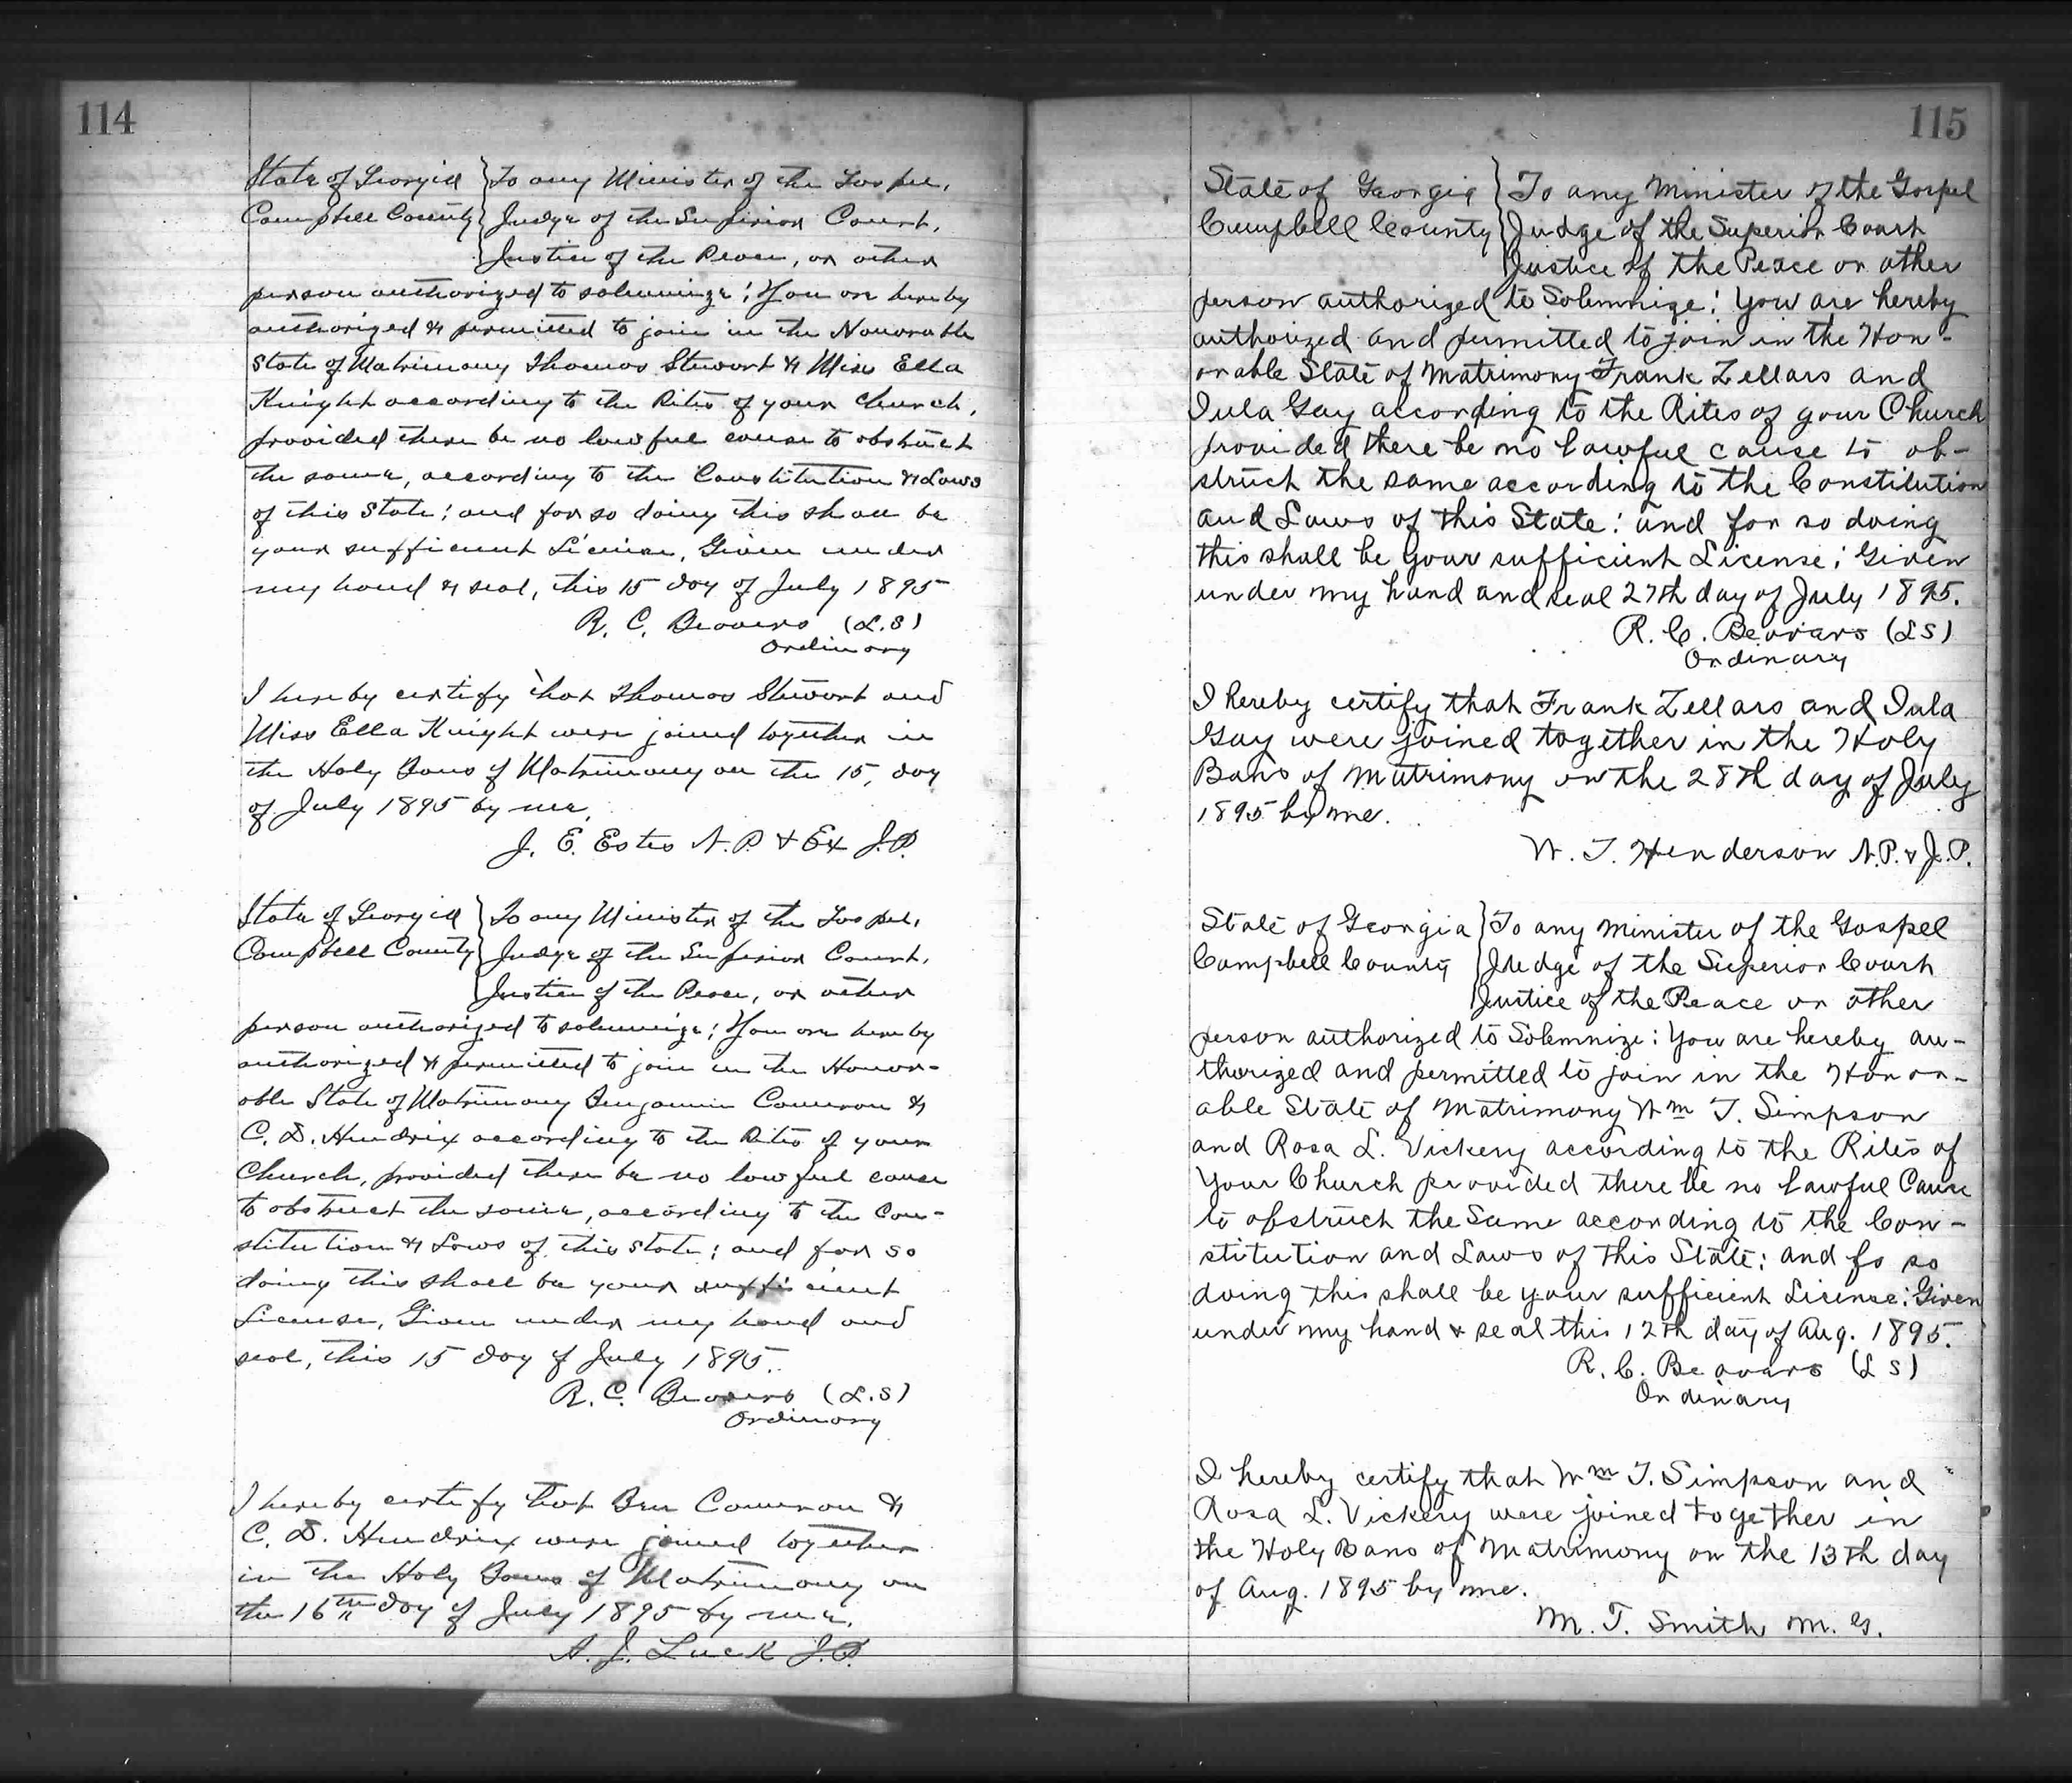 114
State of Georgia } To any Minister of the Gospel,
Campbell County } Judge of the Superior Court,
Justice of the Peace, or other
person authorized to solemnize; You are hereby
authorized & permitted to join in the Honorable
State of Matrimony Thomas Stewart & Miss Ella
Knight according to the Rites of your Church,
provided there be no lawful cause to obstruct
the same, according to the Constitution & Laws
of this State; and for so doing this shall be
your sufficient License, Given under
my hand & seal, this 15 day of July 1895
R. C. Beavers (L.S)
Ordinary
I hereby certify that Thomas Stewart and
Miss Ella Knight were joined together in
the Holy Bans of Matrimony on the 15, day
of July 1895 by me,
J. E. Estes N.P. & Ex J.P.
State of Georgia } To any Minister of the Gospel,
Campbell County } Judge of the Superior Court,
Justice of the Peace, or other
person authorized to solemnize; You are hereby
authorized & permitted to join in the Honor-
able State of Matrimony Benjamin Cameron &
C. D. Hendrix according to the Rites of your
Church, provided there be no lawful cause
to obstruct the same, according to the Con-
stitution & Laws of this State; and for so
doing this shall be your sufficient
License, Given under my hand and
seal, this 15 day of July 1895.
R. C. Beavers (L.S)
Ordinary
I hereby certify that Ben Cameron &
C. D. Hendrix were joined together
in the Holy Bans of Matrimony on
the 16th day of July 1895 by me,
A. J. Luck J.P.
115
State of Georgia } To any Minister of the Gospel
Campbell County } Judge of the Superior Court
Justice of the Peace or other
person authorized to Solemnize: You are hereby
authorized and permitted to join in the Hon-
orable State of Matrimony Frank Zellars and
Iula Gay according to the Rites of your Church
provided there be no lawful cause to ob-
struct the same according to the Constitution
and Laws of this State: and for so doing
this shall be your sufficient License; Given
under my hand and seal 27th day of July 1895.
R. C. Beavers (LS)
Ordinary
I hereby certify that Frank Zellars and Iula
Gay were joined together in the Holy
Bans of Matrimony on the 28th day of July
1895 by me.
W. T. Henderson N.P. & J.P.
State of Georgia } To any Minister of the Gospel
Campbell County } Judge of the Superior Court
Justice of the Peace or other
person authorized to Solemnize: You are hereby au-
thorized and permitted to join in the Honor-
able State of Matrimony Wm T. Simpson
and Rosa L. Vickery according to the Rites of
Your Church provided there be no lawful Cause
to obstruct the Same according to the Con-
stitution and Laws of this State: and fo so
doing this shall be your sufficient License: Given
under my hand & seal this 12th day of Aug. 1895.
R. C. Beavers (LS)
Ordinary
I hereby certify that Wm T. Simpson and
Rosa L. Vickery were joined together in
the Holy Bans of Matrimony on the 13th day
of Aug. 1895 by me.
M. T. Smith M. G.